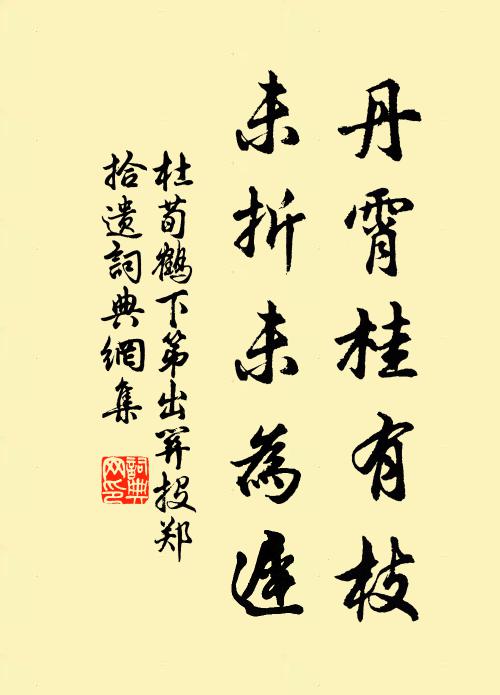 丹霄桂有枝
未折未為遲
杜荀鶴下第出関投郑
拾遗詞典網集
詞典網印